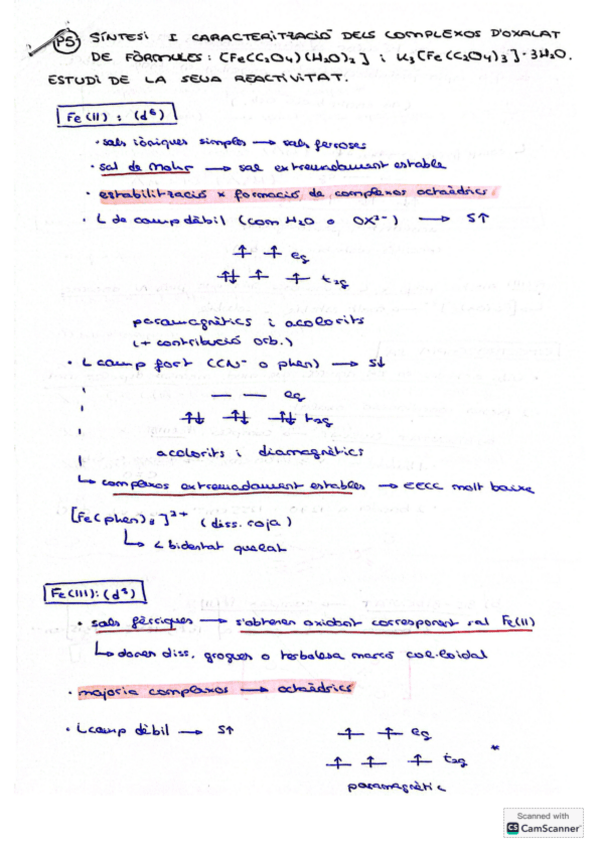 P5 SÍNTESI I CARACTERITZACIÓ DELS COMPLEXOS D'OXALAT
DE FÒRMULES: [Fe(C2O4)(H2O)2] i K3[Fe(C2O4)3]·3H2O.
ESTUDI DE LA SEUA REACTIVITAT.
Fe(II) : (d⁶)
· sals iòniques simples → sals ferroses
· sal de Mohr → sal extremadament estable
· estabilització x formació de complexos octaèdrics
· L de camp dèbil (com H2O o OX²⁻) → S↑
eg
t2g
paramagnètics i acolorits
(+ contribució orb.)
· L camp fort (CN⁻ o phen) → S↓
eg
t2g
acolorits i diamagnètics
↳ complexos extremadament estables → EECC molt baixa
[Fe(phen)3]²⁺ (diss. roja)
↳ L bidentat quelat
Fe(III): (d⁵)
· sals fèrriques → s'obtenen oxidant corresponent sal Fe(II)
↳ donen diss. grogues o terbolesa marró col·loidal
· majoria complexos → octaèdrics
· L camp dèbil → S↑
eg
t2g *
paramagnètic
Scanned with
CS CamScanner